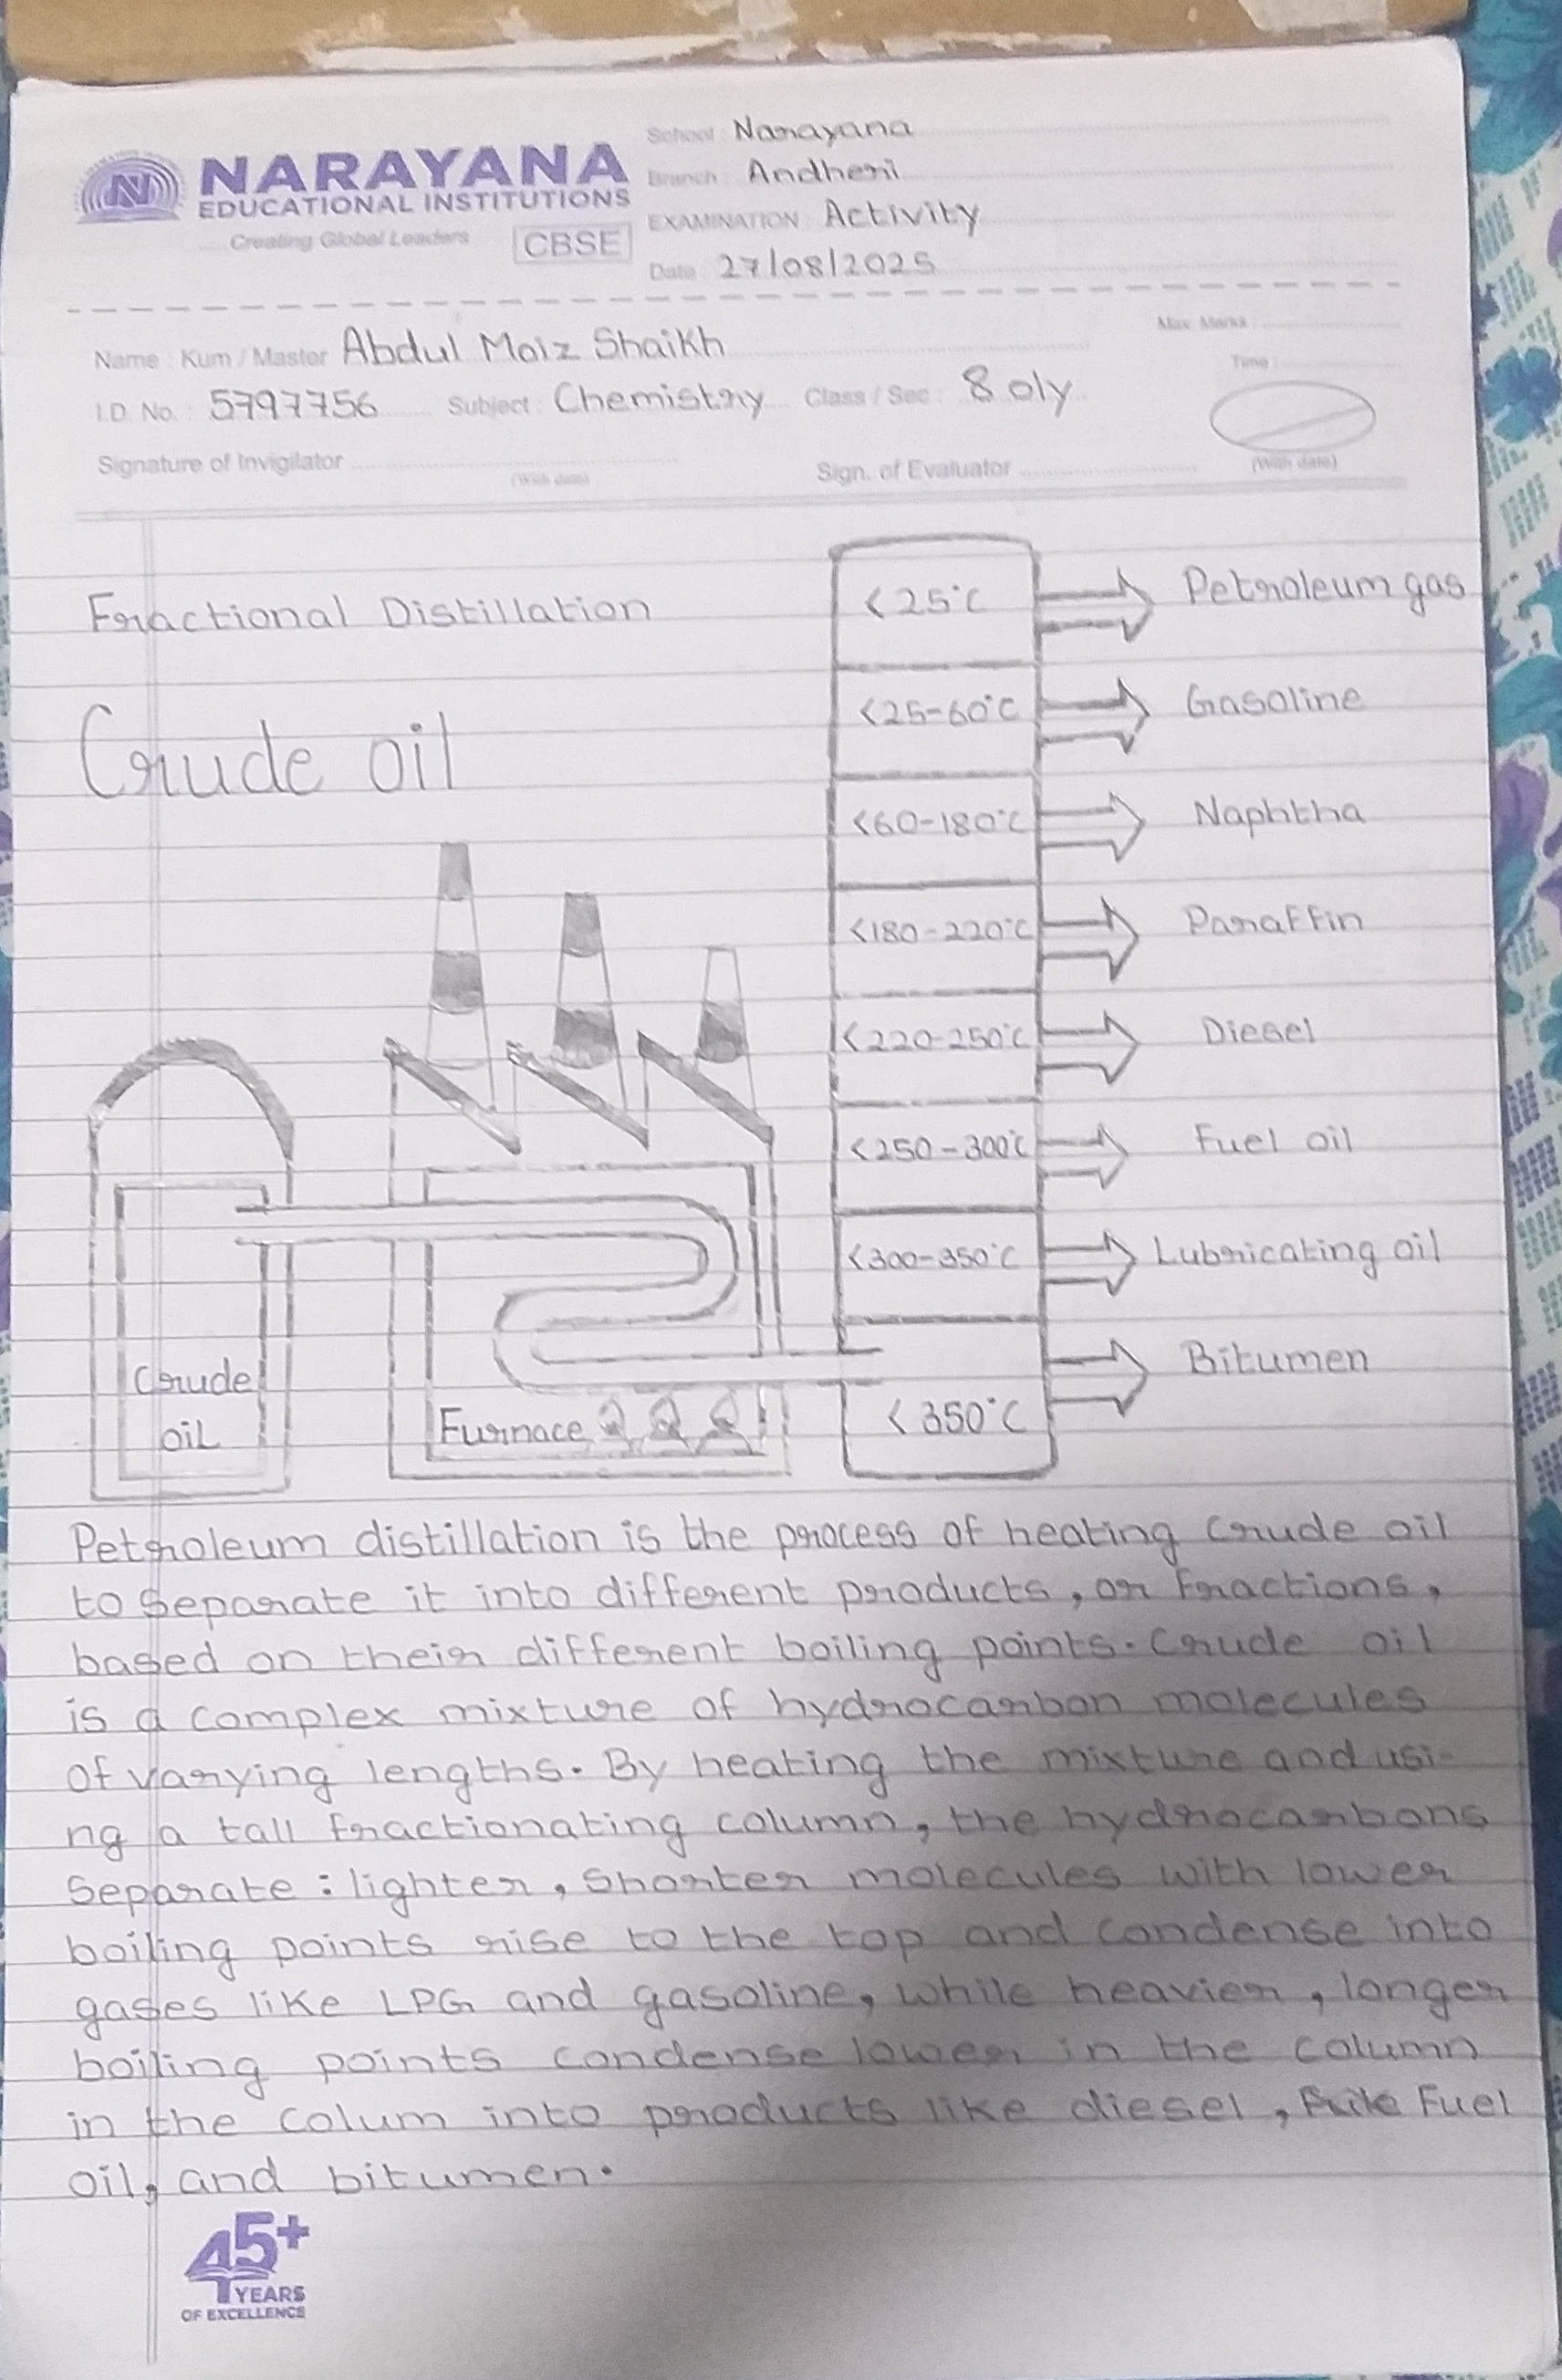 NARAYANA
EDUCATIONAL INSTITUTIONS
Creating Global Leaders
CBSE
School : Narayana
Branch : Andheri
EXAMINATION : Activity
Date : 27/08/2025
Max Marks :
Name : Kum / Master Abdul Moiz Shaikh
Time :
I.D. No. : 5797756 Subject : Chemistry Class / Sec : 8 oly
Signature of Invigilator
(With date)
Sign. of Evaluator
(With date)
Fractional Distillation
Crude oil
<25°C Petroleum gas
<25-60°C Gasoline
<60-180°C Naphtha
<180-220°C Paraffin
<220-250°C Diesel
<250-300°C Fuel oil
<300-350°C Lubricating oil
<350°C Bitumen
Crude
oil
Furnace
Petroleum distillation is the process of heating Crude oil
to separate it into different products, or fractions,
based on their different boiling points. Crude oil
is a complex mixture of hydrocarbon molecules
of varying lengths. By heating the mixture and usi-
ng a tall fractionating column, the hydrocarbons
Separate : lighter, shorter molecules with lower
boiling points rise to the top and condense into
gases like LPG and gasoline, while heavier, longer
boiling points condense lower in the column
in the colum into products like diesel, Fuel
oil, and bitumen.
45+
YEARS
OF EXCELLENCE